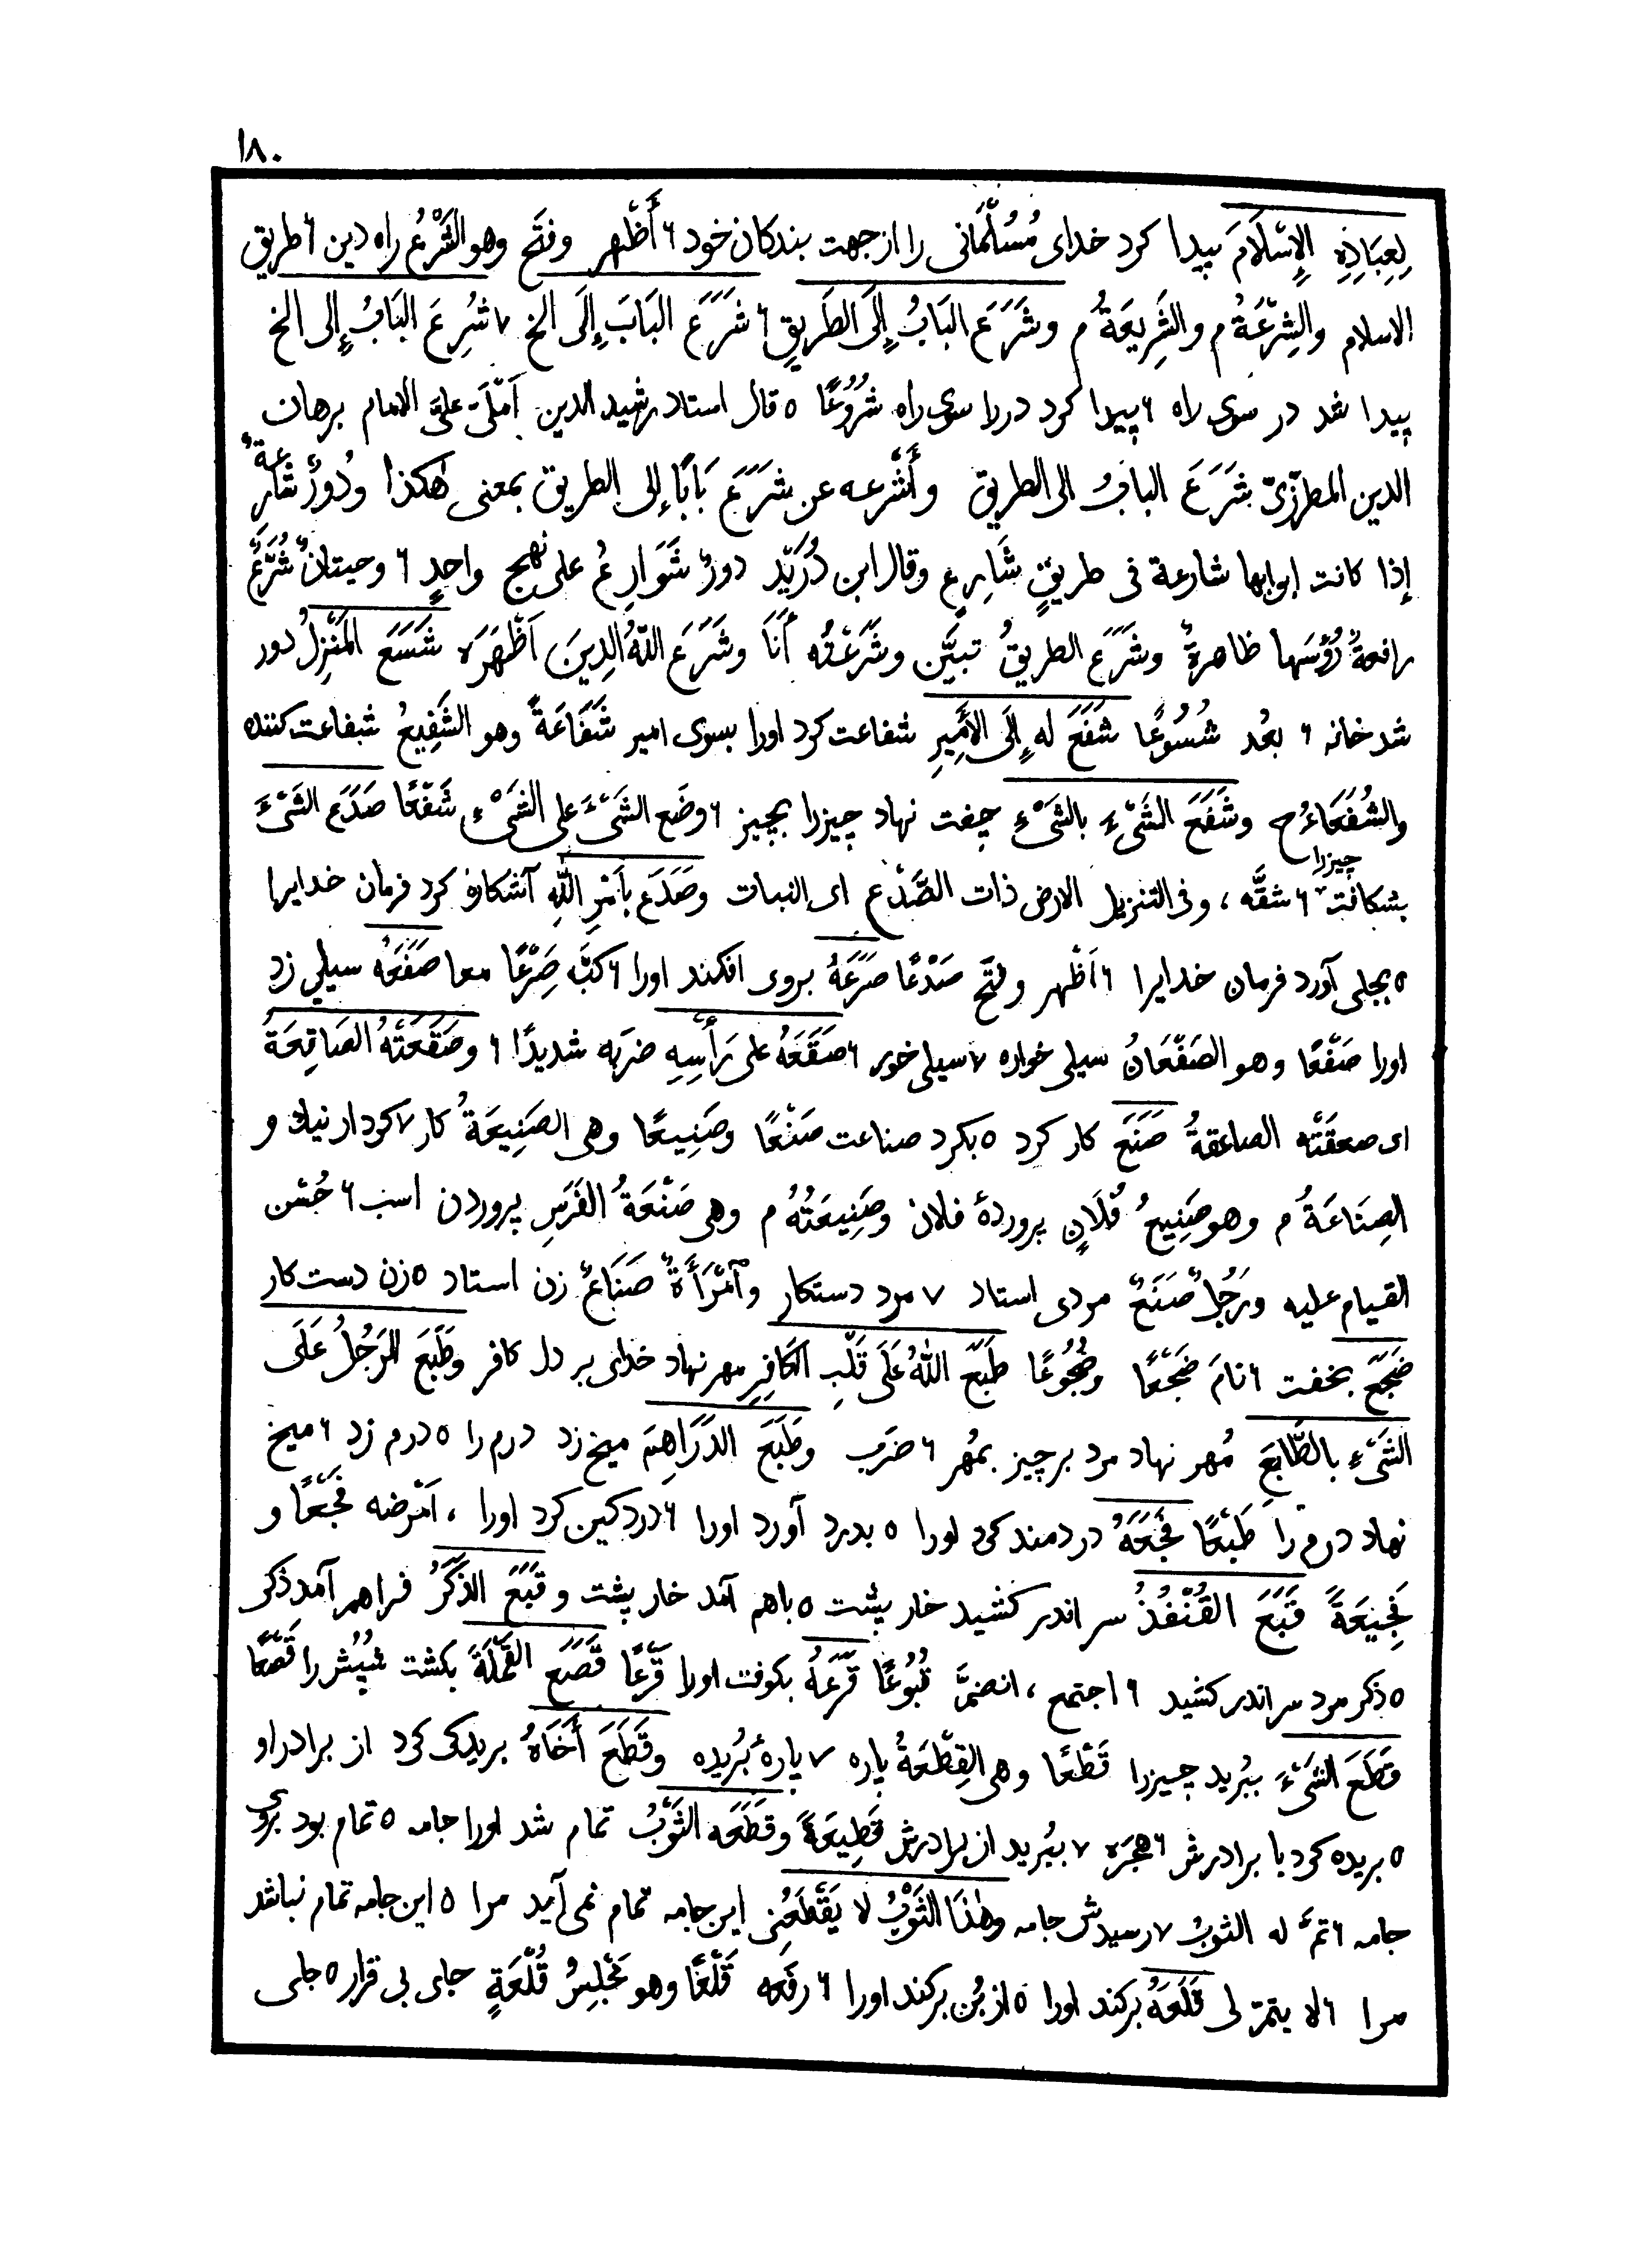 ١٨٠
لِعِبَادِهِ الإِسْلَامَ پیدا کرد خدای مُسُلْمَانی را از جهت بندکان خود ۶ أَظْهر وفتَح وهو الشَّرْعُ راه دین ۶ طریق
الاسلام والشِرْعَةُ م والشَرِيعَةُ م وشَرَعَ البَابُ إِلَى الطَرِيقِ ۶ شَرَعَ البَابَ إِلَى الخ ٧ شُرِعَ البَابُ إلى الخ
پیدا شد در سوی راه ۶ پیدا کرد در را سوی راه شُرُوعًا ٥ قال استاد رشید الدین اَمْلَى علىَّ الامام برهان
الدين المطرّزىّ شَرَعَ البابُ الى الطريق وأَشْرعه عن شَرَعَ بَابًا إلى الطريق بمعنى هكذا ودُورٌ شَارِعَةٌ
إذا كانت ابوابها شارعة فى طريقٍ شَارِعٍ وقال ابن دُرَيْد دورٌ شَوَارِعُ على نهج واحدٍ ۶ وحيتانٌ شُرَّعٌ
رافعةٌ رُؤسَها ظاهرةٌ وشَرَعَ الطريقُ تبيَّن وشَرَعْتُه أَنَا وشَرَعَ اللّٰهُ الدِينَ اَظْهَرَه شَسَعَ المَنْزِلُ دور
شد خانه ۶ بعُد شُسُوعًا شَفَعَ له إِلَى الأَمِيرِ شفاعت کرد اورا بسوی امیر شَفَاعَةً وهو الشَفِيعُ شفاعت کننده
والشُفَعَاءُ ج وشَفَعَ الشَىْءَ بالشَىْءِ جفت نهاد چیزرا بچیز ۶ وضَع الشَىْءَ على الشَىْءِ شَفْعًا صَدَعَ الشَىْءَ
بشکافت چیزرا ۶ شقَّه ، وفى التنزيل الارض ذات الصَّدْعِ اى النبات وصَدَعَ بأَمْرِ اللّٰهِ آشکاره کرد فرمان خدایرا
٥ بجای آورد فرمان خدایرا ۶ اَظْهر وفتَح صَدْعًا صَرَعَهُ بروی افکند اورا ۶ کبَّه صَرْعًا معا صَفَعَهُ سیلی زد
اورا صَفْعًا وهو الصَفْعَانُ سیلی خواره ٧ سیلی خور ۶ صَقَعَهُ على رَأْسِهِ ضربَه شديدًا ۶ وصَقَعَتْهُ الصَاقِعَةُ
اى صعقَتْه الصاعقةُ صَنَعَ کار کرد ٥ بکرد صناعت صَنْعًا وصَنِيعًا وهى الصَنِيعَةُ کار ٧ کردار نیك و
الصِنَاعَةُ م وهو صَنِيعُ فُلَانٍ پروردهٔ فلان وصَنِيعَتُهُ م وهى صَنْعَةُ الفَرَسِ پروردن اسب ۶ حُسْن
القيام عليه ورَجُلٌ صَنَعٌ مردی استاد ٧ مرد دستکار وٱمْرَأَةٌ صَنَاعٌ زن استاد ٥ زن دست کار
ضَجَعَ بخفت ۶ نامَ ضَجْعًا وضُجُوعًا طَبَعَ اللّٰهُ عَلَى قَلْبِ الكَافِرِ مهر نهاد خدای بر دل کافر وطَبَعَ الرَجُلُ عَلَى
الشَىْءِ بالطَّابَعِ مُهر نهاد مرد بر چیز بمُهر ۶ ضرَب وطَبَعَ الدَرَاهِمَ میخ زد درم را ٥ درم زد ۶ میخ
نهاد درم را طَبْعًا فَجَعَهُ دردمند کرد اورا ٥ بدرد آورد اورا ۶ درد کین کرد اورا ، اَمْرضه فَجْعًا و
فَجِيعَةً قَبَعَ القُنْفُذُ سر اندر کشید خار پشت ٥ باهم آمد خار پشت وقَبَعَ الذَكَرُ فراهم آمد ذکر
٥ ذکر مرد سر اندر کشید ۶ اجتمع ، انضمَّ قُبُوعًا قَرَعَهُ بکوفت اورا قَرْعًا قَصَعَ القَمْلَةَ بکشت شپش را قَصْعًا
قَطَعَ الشَىْءَ ببُرید چیزرا قَطْعًا وهى القِطْعَةُ پاره ٧ پارهٔ بُریده وقَطَعَ أَخَاهُ بریدکی کرد از برادر او
٥ بریده کرد با برادرش ۶ هجَره ٧ ببُرید از برادرش قَطِيعَةً وقَطَعَه الثَوْبُ تمام شد اورا جامه ٥ تمام بود بروی
جامه ۶ تمَّ له الثوبُ ٧ رسیدش جامه وهٰذَا الثَوْبُ لا يَقْطَعُنِى این جامه تمام نمی آید مرا ٥ این جامه تمام نباشد
مرا ۶ لا یتمّ لی قَلَعَهُ برکند اورا ٥ از بُن برکند اورا ۶ رفَعه قَلْعًا وهو مَجْلِسُ قُلْعَةٍ جای بی قرار ٥ جای